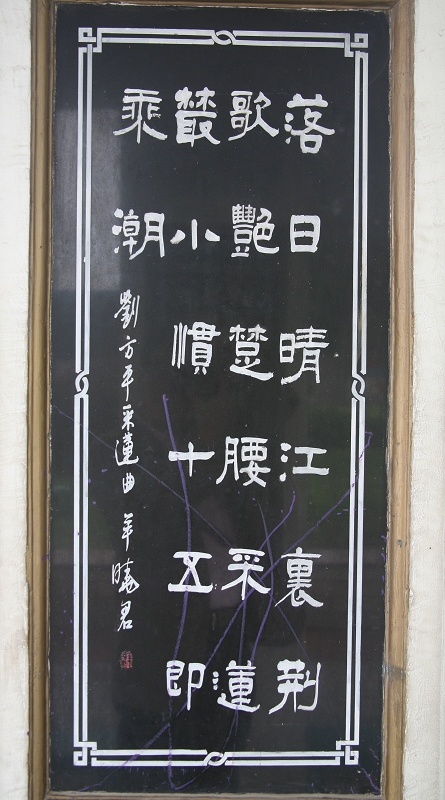 落日晴江裏荆
歌艷楚腰采蓮
叢小慣十五即
乘潮
劉方平采蓮曲 羊曉君